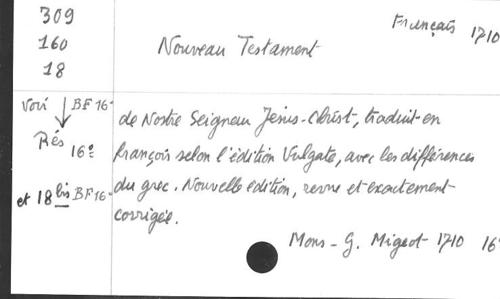 309
Français 1710
160
Nouveau Testament
18
voir BF 16°
Rés 16°
et 18 bis BF 16°
de Nostre Seigneur Jésus-Christ, traduit en
françois selon l'édition Vulgate, avec les différences
du grec. Nouvelle édition, revue et exactement
corrigée.
Mons - G. Migeot 1710 16°